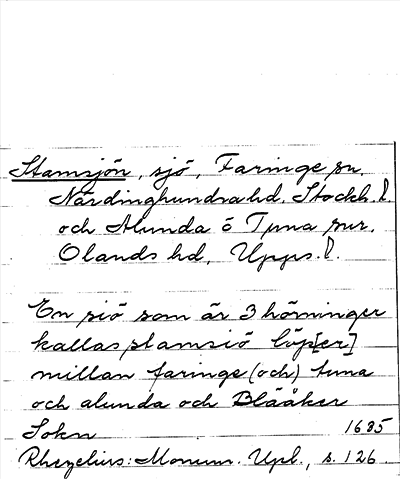 Stamsjön, sjö, Faringe sn,
Närdinghundra hd, Stockh. l.
och Alunda o Tuna snr,
Olands hd, Upps. l.
En siö som är 3 hörninger
kallas stamsiö löp[er]
millan faringe (och) tuna
och alunda och Blååker
Sokn 1685
Rhezelius: Monum. Upl., s. 126.